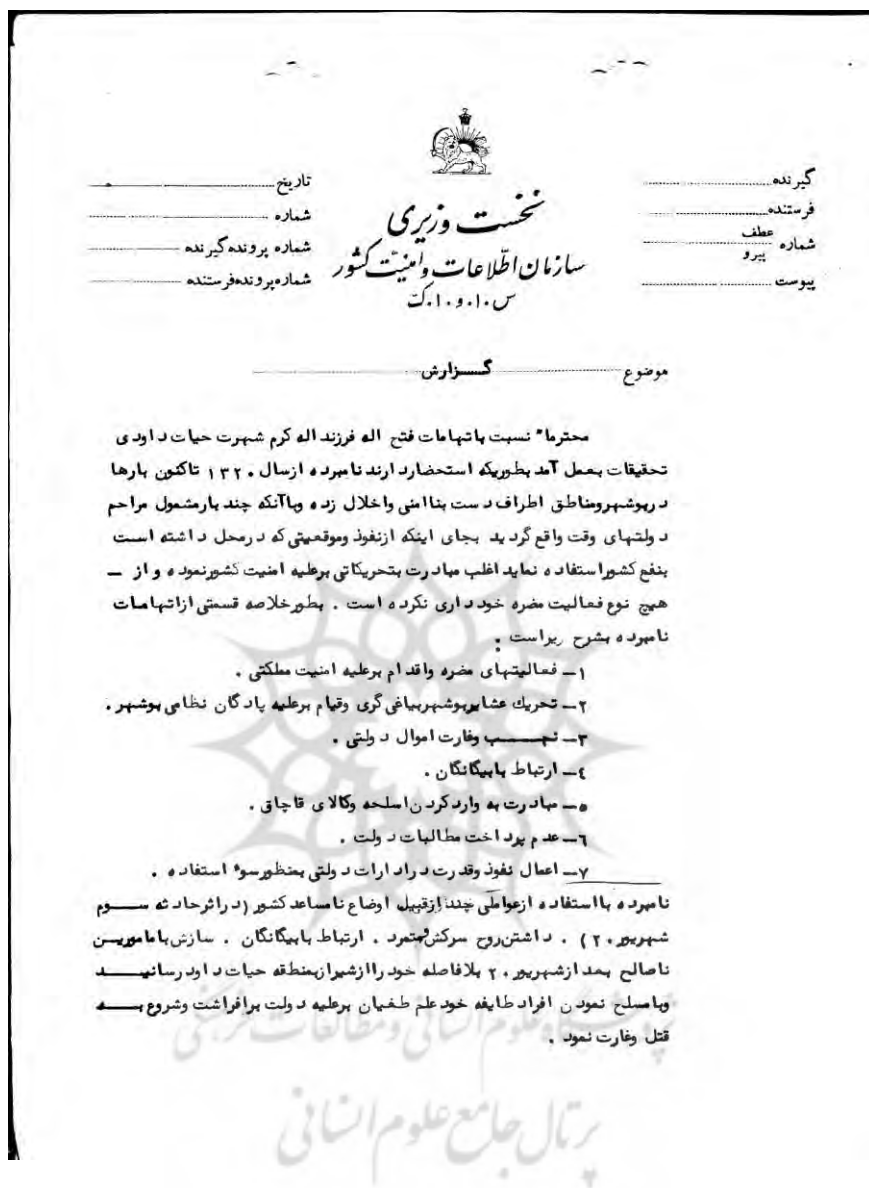 گیرنده
فرستنده
شماره عطف پیرو
پیوست
نخست وزیری
سازمان اطلاعات و امنیت کشور
س.۱۰.و.۱۰.ک
تاریخ
شماره
شماره پرونده گیرنده
شماره پرونده فرستنده
موضوع گـــزارش
محترما" نسبت باتهامات فتح اله فرزند اله کرم شهرت حیات داودی
تحقیقات بعمل آمد بطوریکه استحضار دارند نامبرده ازسال ۱۳۲۰ تاکنون بارها
دربوشهرومناطق اطراف دست بناامنی واخلال زده وباآنکه چند بارمشمول مراحم
دولتهای وقت واقع گردید بجای اینکه ازنفوذ وموقعیتی که درمحل داشته است
بنفع کشوراستفاده نماید اغلب مبادرت بتحریکاتی برعلیه امنیت کشورنموده و از ـ
هیچ نوع فعالیت مضره خودداری نکرده است . بطورخلاصه قسمتی ازاتهامات
نامبرده بشرح زیراست :
۱ـ فعالیتهای مضره واقدام برعلیه امنیت مملکتی .
۲ـ تحریك عشایربوشهربیاغی گری وقیام برعلیه پادگان نظامی بوشهر .
۳ـ نهـــب وغارت اموال دولتی .
٤ـ ارتباط بابیگانگان .
۵ـ مبادرت به واردکردن اسلحه وکالای قاچاق .
٦ـ عدم پرداخت مطالبات دولت .
۷ـ اعمال نفوذ وقدرت درادارات دولتی بمنظورسوء استفاده .
نامبرده بااستفاده ازعواملی چند ازقبیل اوضاع نامساعد کشور (دراثرحادثه ســوم
شهریور ۲۰) . داشتن روح سرکش ومتمرد . ارتباط بابیگانگان . سازش بامامورین
ناصالح بعد ازشهریور ۲۰ بلافاصله خودراازشیرازبمنطقه حیات داود رسانیـــد
وبامسلح نمودن افراد طایفه خود علم طغیان برعلیه دولت برافراشت وشروع بـــه
قتل وغارت نمود .
پژوهشگاه علوم انسانی و مطالعات فرهنگی
پرتال جامع علوم انسانی